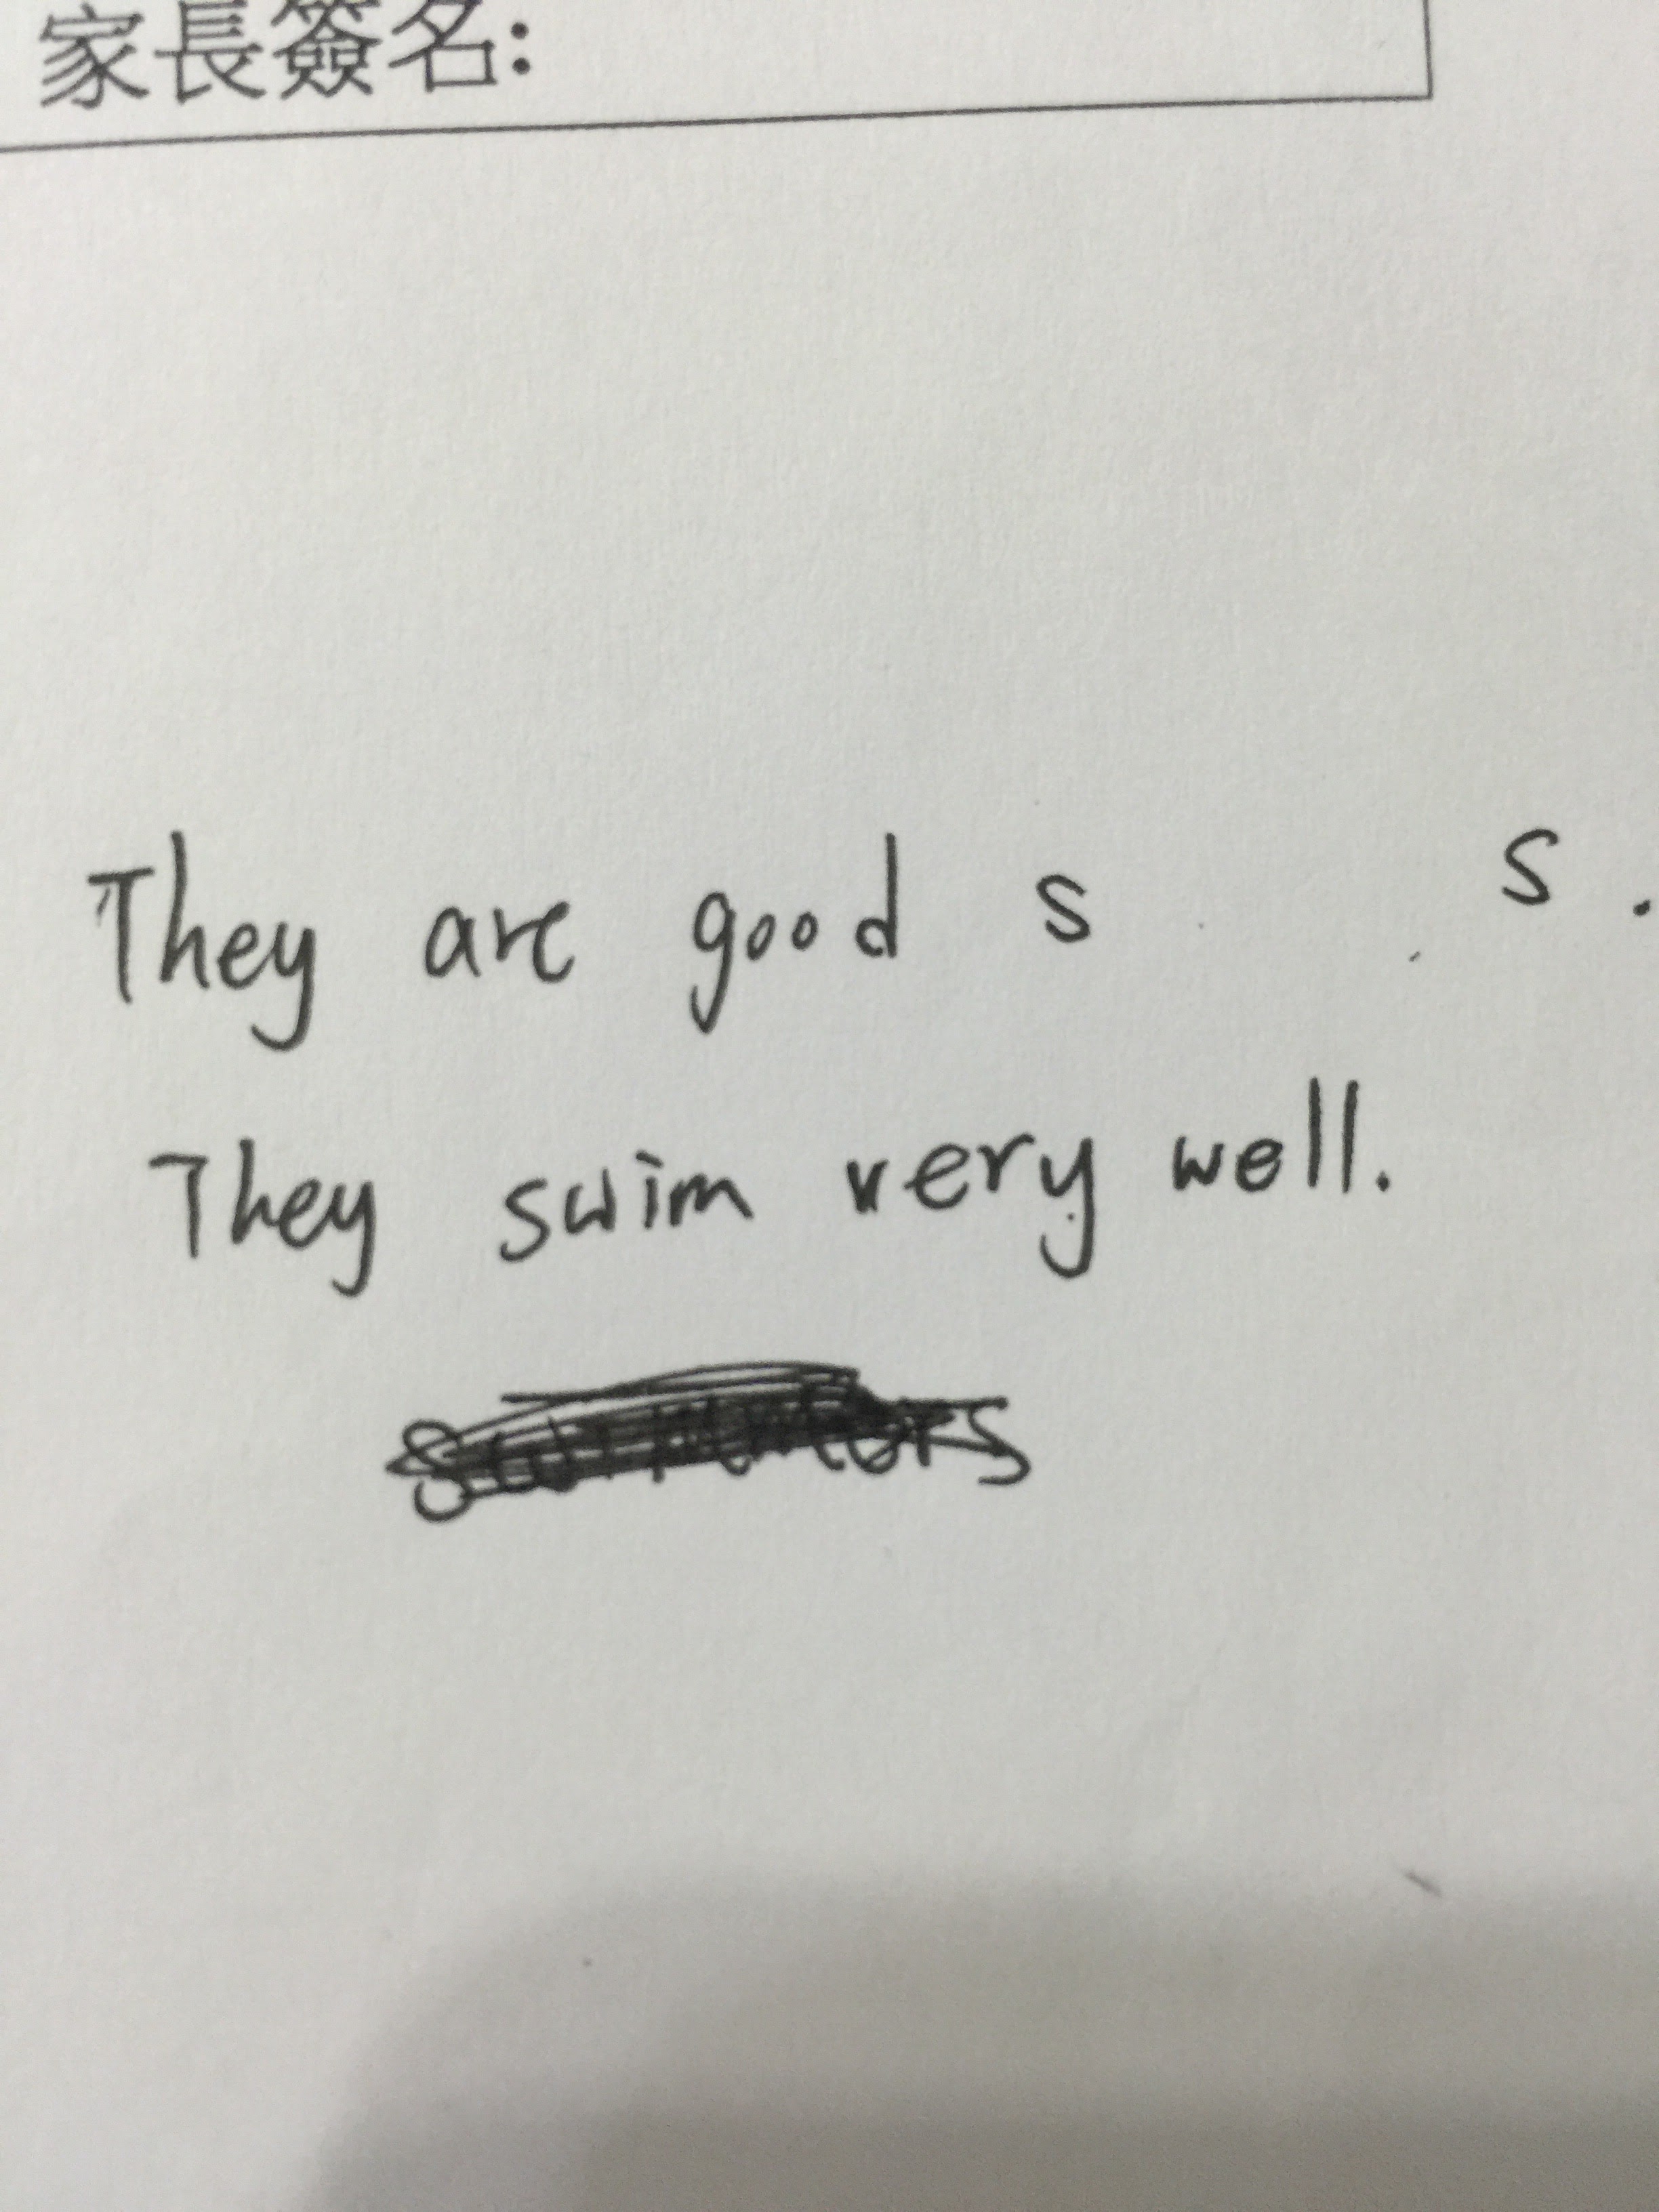 家長簽名:
They are good s s.
They swim very well.